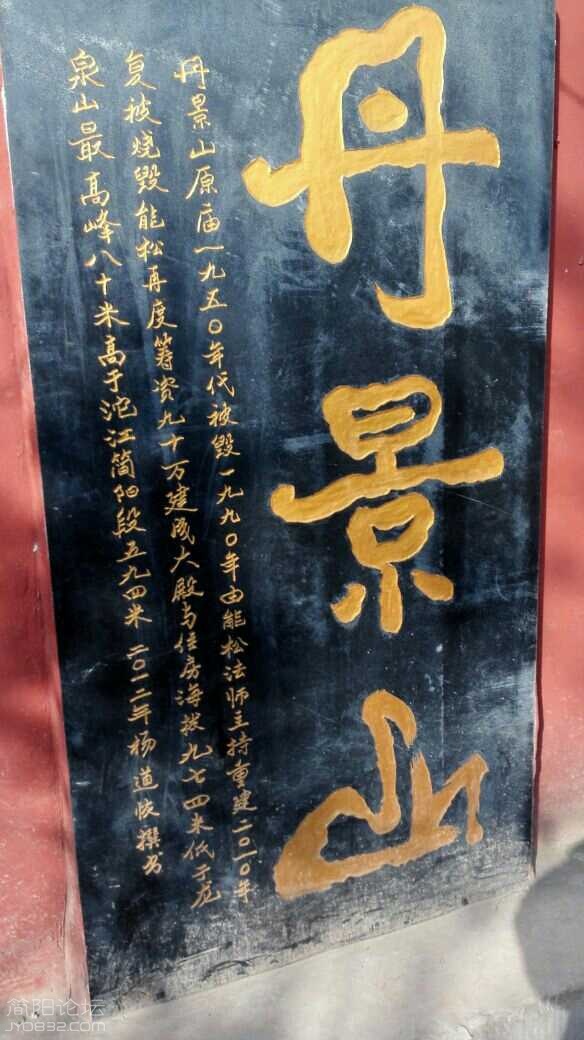 丹景山
丹景山原庙一九五〇年代被毁一九九〇年由能松法师主持重建二〇一〇年
复被烧毁能松再度筹资九十万建成大殿与住房海拔九七四米低于龙
泉山最高峰八十米高于沱江简阳段五九四米二〇一二年杨道恢撰书
简阳论坛
JY0832.COM